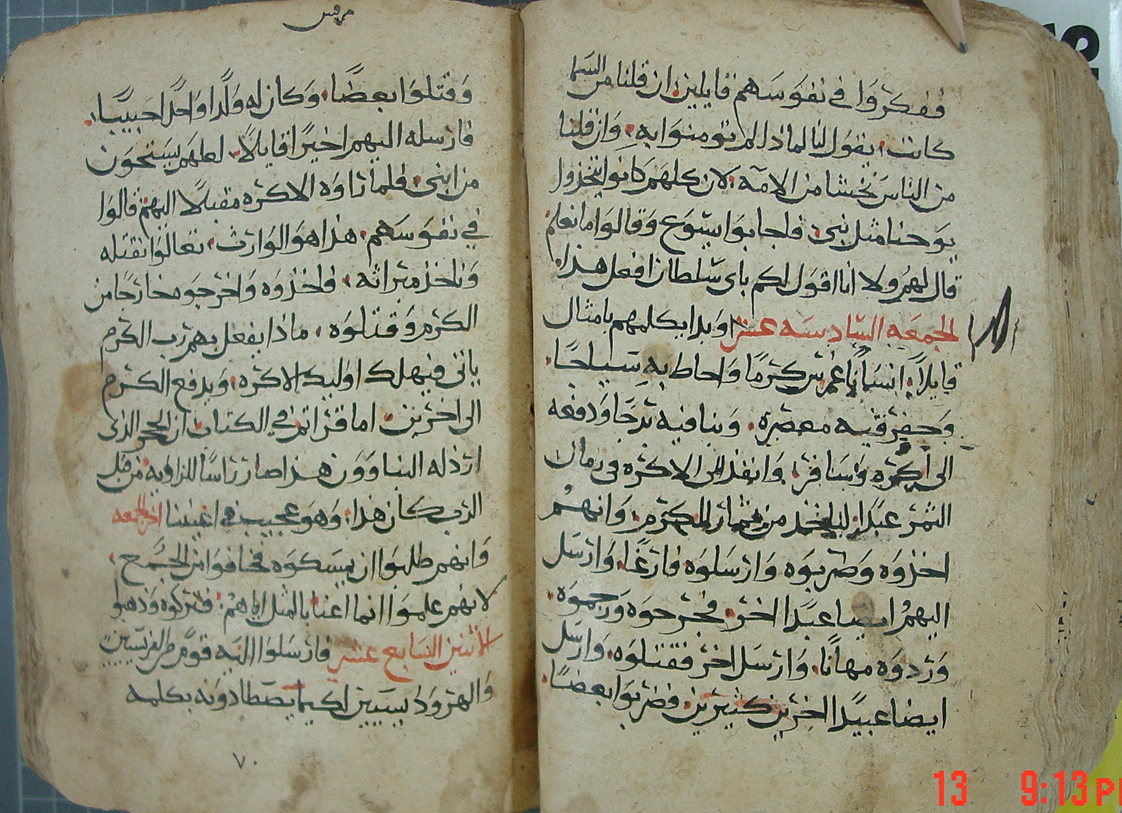 ففكروا في نفوسهم قايلين ان قلنا من السما
كانت يقول لنا لماذا لم تومنوا به وان قلنا
من الناس نخشا من الامه لان كلهم كانوا يتخذون
يوحنا مثل نبي فاجابوا يشوع وقالوا ما نعلم
قال لهم ولا انا اقول لكم باي سلطان افعل هذا
الجمعه السادسه عشر وبدا يكلمهم بامثال
قايلا انسانا غرس كرما واحاط به سياجا
وحفر فيه معصره وبنا فيه برجا ودفعه
الى اكره وسافر وانفذ الى الاكره في زمان
الثمر عبدا ليأخذ من ثمار الكرم وانهم
اخذوه وضربوه وارسلوه فارغا وارسل
اليهم ايضا عبدا اخر فجرحوه ورجموه
وردوه مهانا وارسل اخر فقتلوه وارسل
ايضا عبيدا اخرين كثيرين فضربوا بعضا
مرقس
وقتلوا بعضا وكان له ولدا واحدا حبيبا
فارسله اليهم اخيرا قايلا لعلهم يستحون
من ابني فلما راوه الاكره مقبلا اليهم قالوا
في نفوسهم هذا هو الوارث تعالوا نقتله
وناخذ ميراثه فاخذوه واخرجوه خارجا من
الكرم وقتلوه ماذا يفعل بهم رب الكرم
ياتي فيهلك اوليك الاكره ويدفع الكرم
الى اخرين اما قراتم في الكتاب ان الحجر الذي
ارذله البناوون هذا صار راسا للزاويه من قبل
الرب كان هذا وهو عجيب في اعيننا الجمعه
وانهم طلبوا ان يمسكوه فخافوا من الجمع
لانهم علموا انما اعنا بالمثل اياهم فتركوه وذهبوا
الاثنين السابع عشر فارسلوا اليه قوم من الفريسيين
والهرودايسيين لكيما يصطادونه بكلمه
٧٠
13 9:13